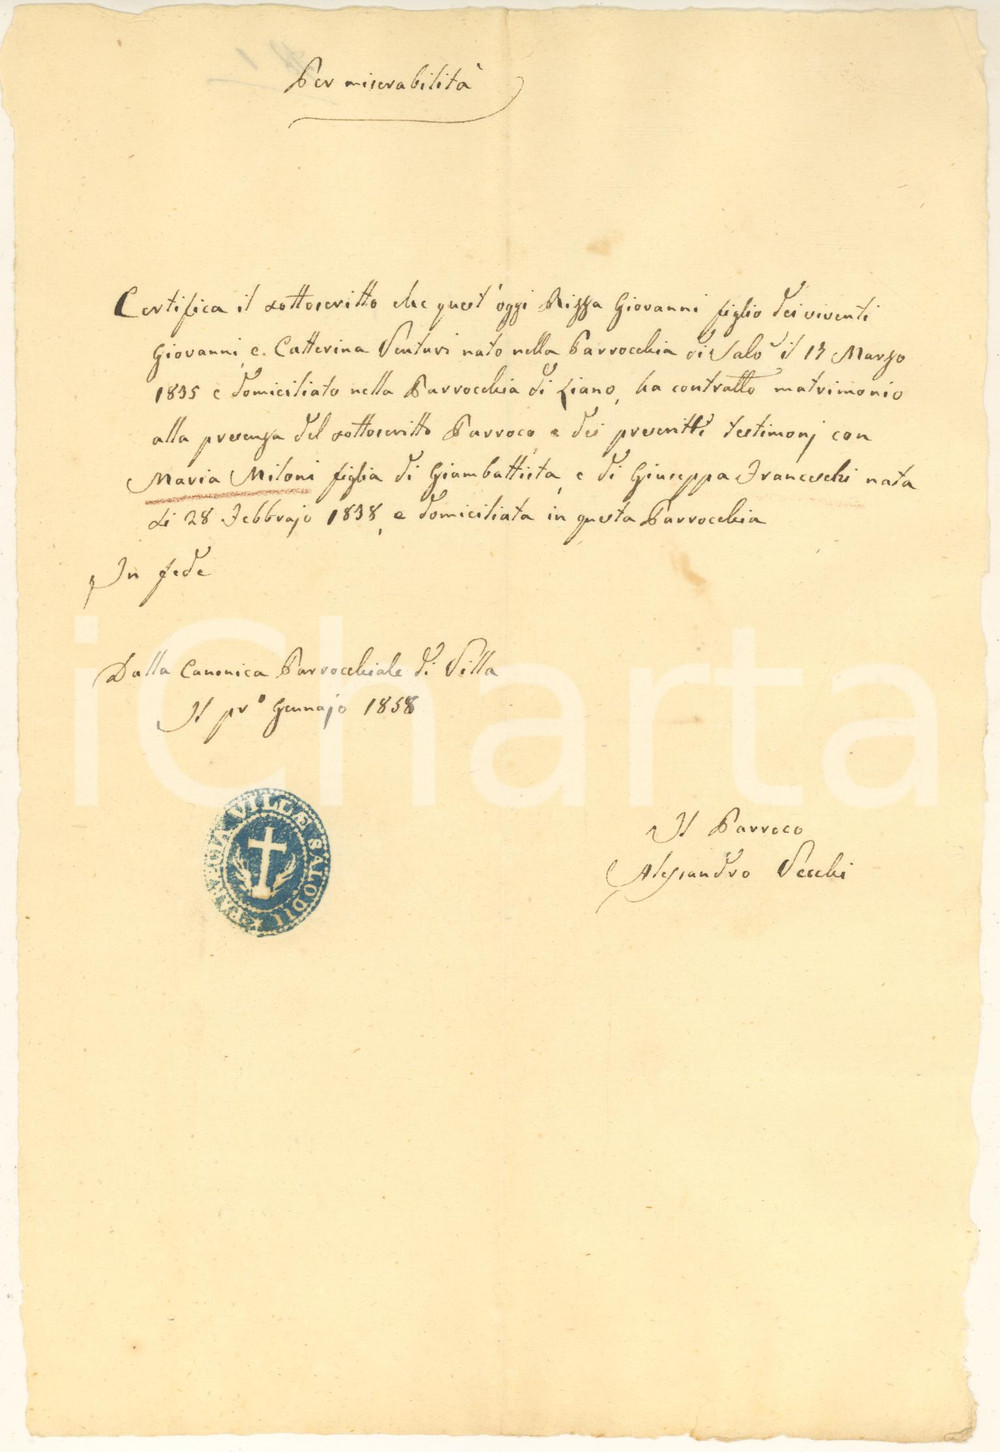 Per miserabilità
Certifica il sottoscritto che quest'oggi Rizza Giovanni figlio dei viventi
Giovanni, e Catterina Venturi nato nella Parrocchia di Salò il 13 Marzo
1835 e domiciliato nella Parrocchia di Liano, ha contratto matrimonio
alla presenza del sottoscritto Parroco e dei prescritti testimonj con
Maria Miloni figlia di Giambattista, e di Giuseppa Franceschi nata
li 28 Febbrajo 1838, e domiciliata in questa Parrocchia
In fede
Dalla Canonica Parrocchiale di Villa
Il pr.o Gennajo 1858
iCharta
VILLÆ SALODII
Il Parroco
Alessandro Vecchi